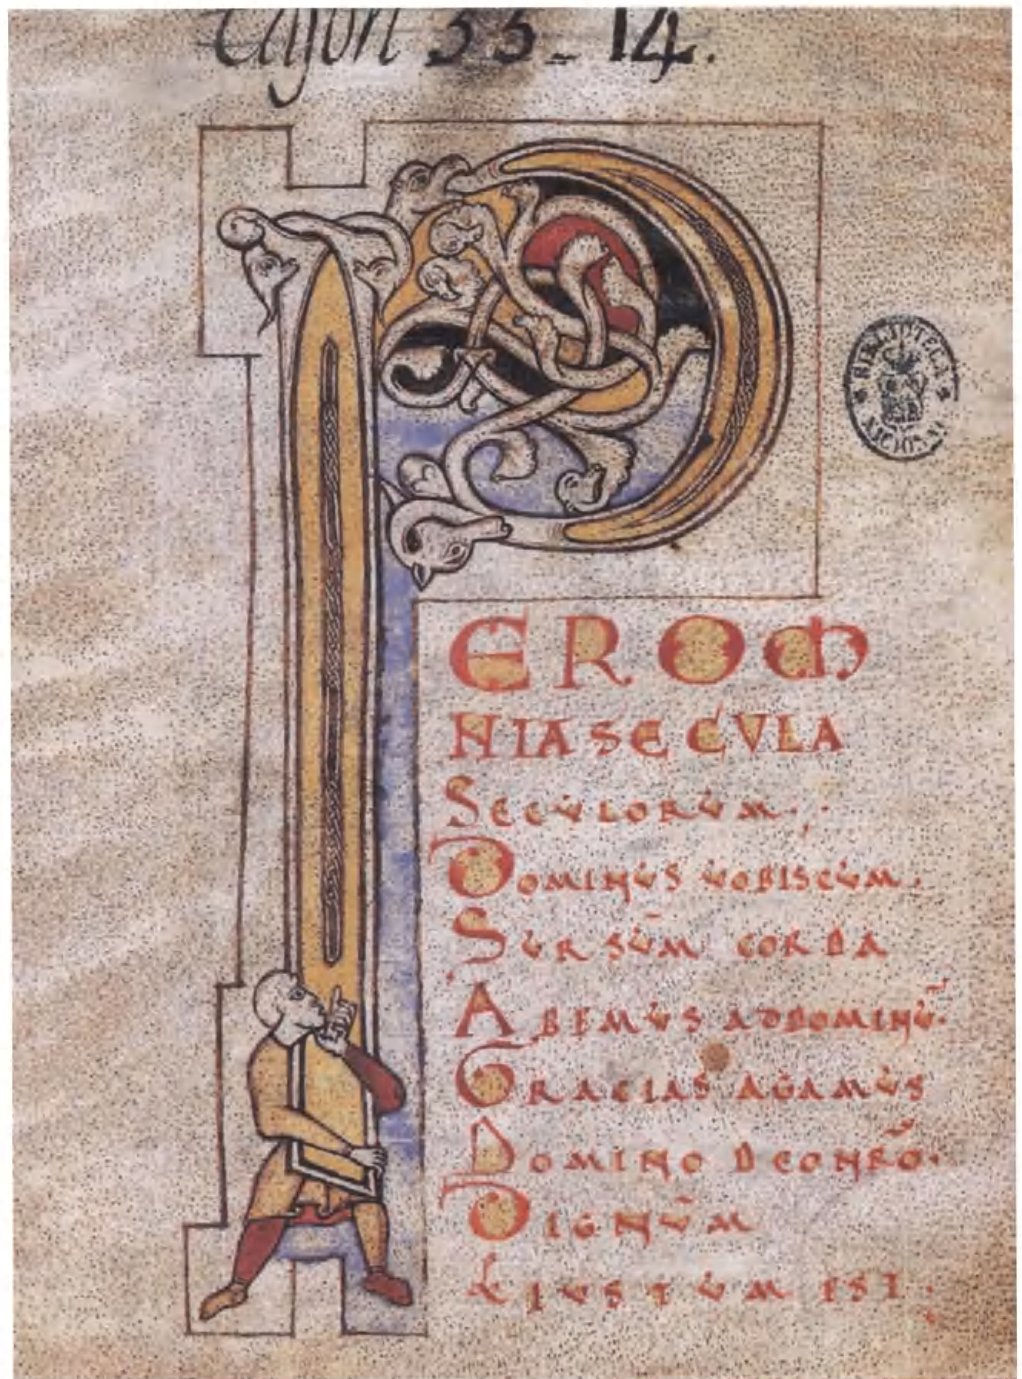 Cajon 35-14.
BIBLIOTECA NACIONAL
P
EROM
NIA SECULA
SECULORUM.
DOMINUS UOBISCUM.
SURSUM CORDA
ABEMUS AD DOMINŪ.
GRACIAS AGAMUS
DOMINO DEO NR̄O.
DIGNUM
& IUSTUM EST.